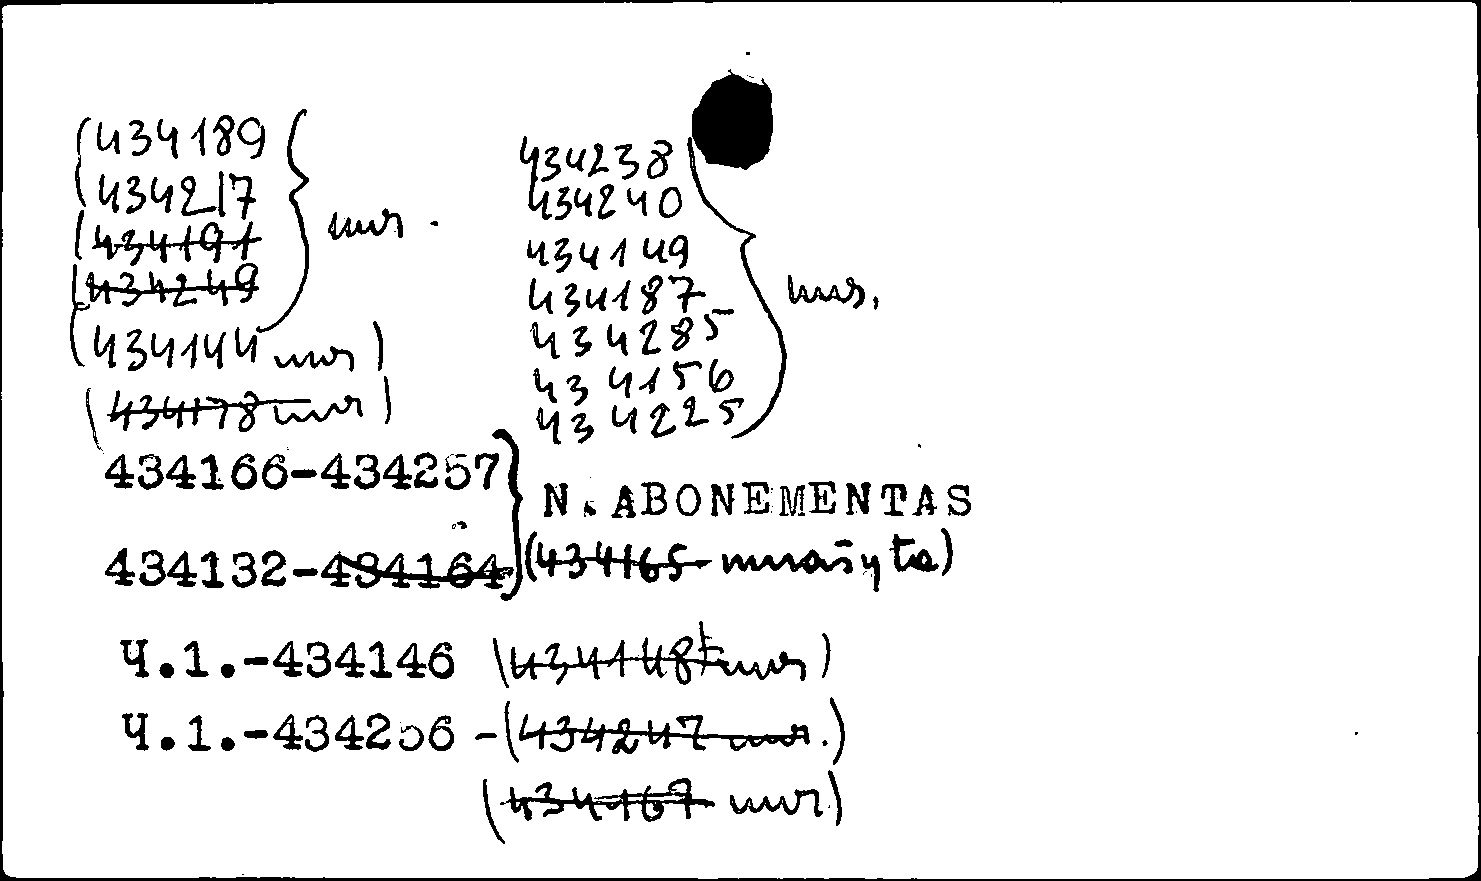 (434189
(434217
(434191
(434249
nur.
(434144 nur)
(434178 nur)
434238
434240
434149
434187
434285
434156
434225
nur.
434166-434257
N. ABONEMENTAS
434132-434164 (434165- nurašyta)
Ч.1.-434146 (434148 nur)
Ч.1.-434256 -(434247 nur.)
(434167 nur)